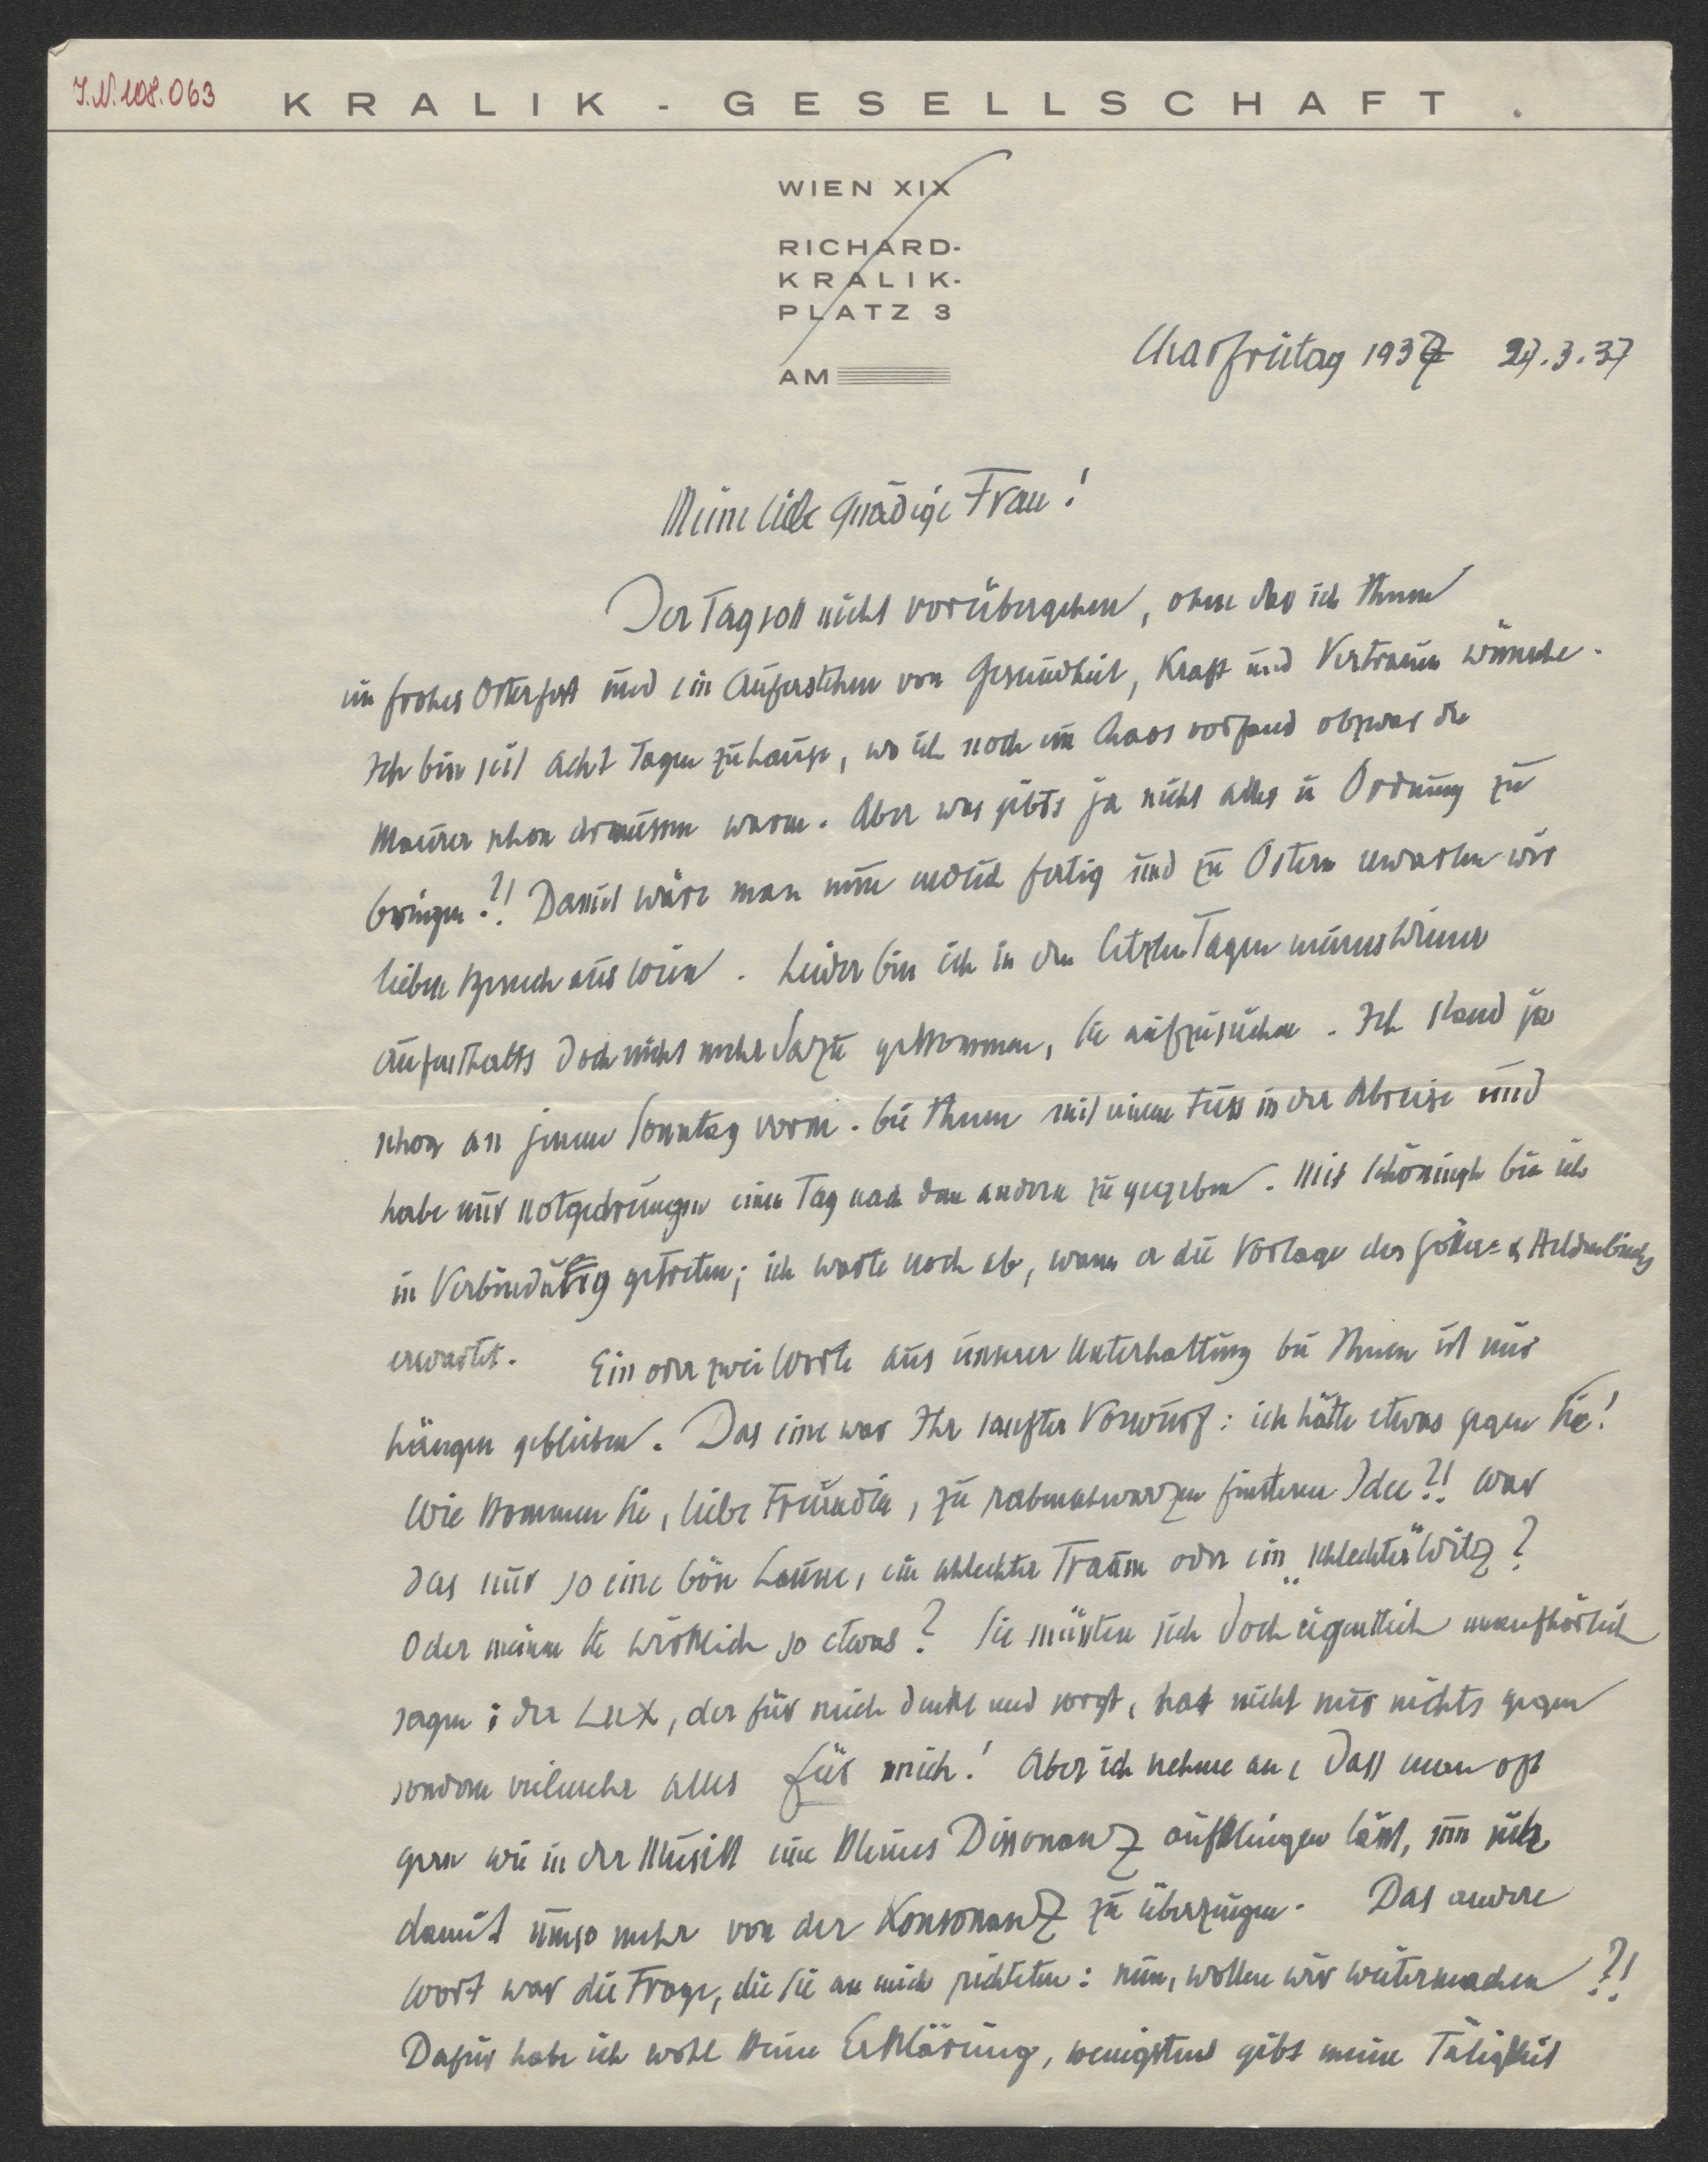 I.N. 108.063
KRALIK-GESELLSCHAFT.
WIEN XIX
RICHARD-
KRALIK-
PLATZ 3
AM
Charfreitag 1937 27.3.37
Meine liebe gnädige Frau!
Der Tag soll nicht vorübergehen, ohne das ich Ihnen
ein frohes Osterfest und ein Auferstehen von Gesundheit, Kraft und Vertrauen wünsche.
Ich bin seit acht Tagen zuhause, wo ich noch ein Chaos vorfand obzwar die
Maurer schon draussen waren. Aber was gibts ja nicht alles in Ordnung zu
bringen?! Damit wäre man nun endlich fertig und zu Ostern erwarten wir
lieben Besuch aus Wien. Leider bin ich in den letzten Tagen meines Wiener
Aufenthalts doch nicht mehr dazu gekommen, Sie aufzusuchen. Ich stand ja
schon an jenem Sonntag vorm. bei Ihnen mit einem Fuss in der Abreise und
habe mir notgedrungen einen Tag nach dem andern zugegeben. Mit Schöningh bin ich
in Verbindung getreten; ich warte noch ab, wann er die Vorlage des Götter= & Heldenbuchs
erwartet. Ein oder zwei Worte aus unserer Unterhaltung bei Ihnen ist mir
hängen geblieben. Das eine war Ihr sanfter Vorwurf: ich hätte etwas gegen Sie!
Wie kommen Sie, liebe Freundin, zu rabenschwarzen finsteren Idee?! War
das nur so eine böse Laune, ein schlechter Traum oder ein „schlechter" Witz?
Oder meinen Sie wirklich so etwas? Sie müssten sich doch eigentlich unaufhörlich
sagen: der Lux, der für mich denkt und sorgt, hat nicht nur nichts gegen
sondern vielmehr alles für mich! Aber ich nehme an, dass man oft
gern wie in der Musik eine kleines Dissonanz aufklingen lässt, um sich
damit umso mehr von der Konsonanz zu überzeugen. Das andere
Wort war die Frage, die Sie an mich richteten: nun, wollen wir weitermachen?!
Dafür habe ich wohl keine Erklärung, wenigstens gibt meine Tätigkeit